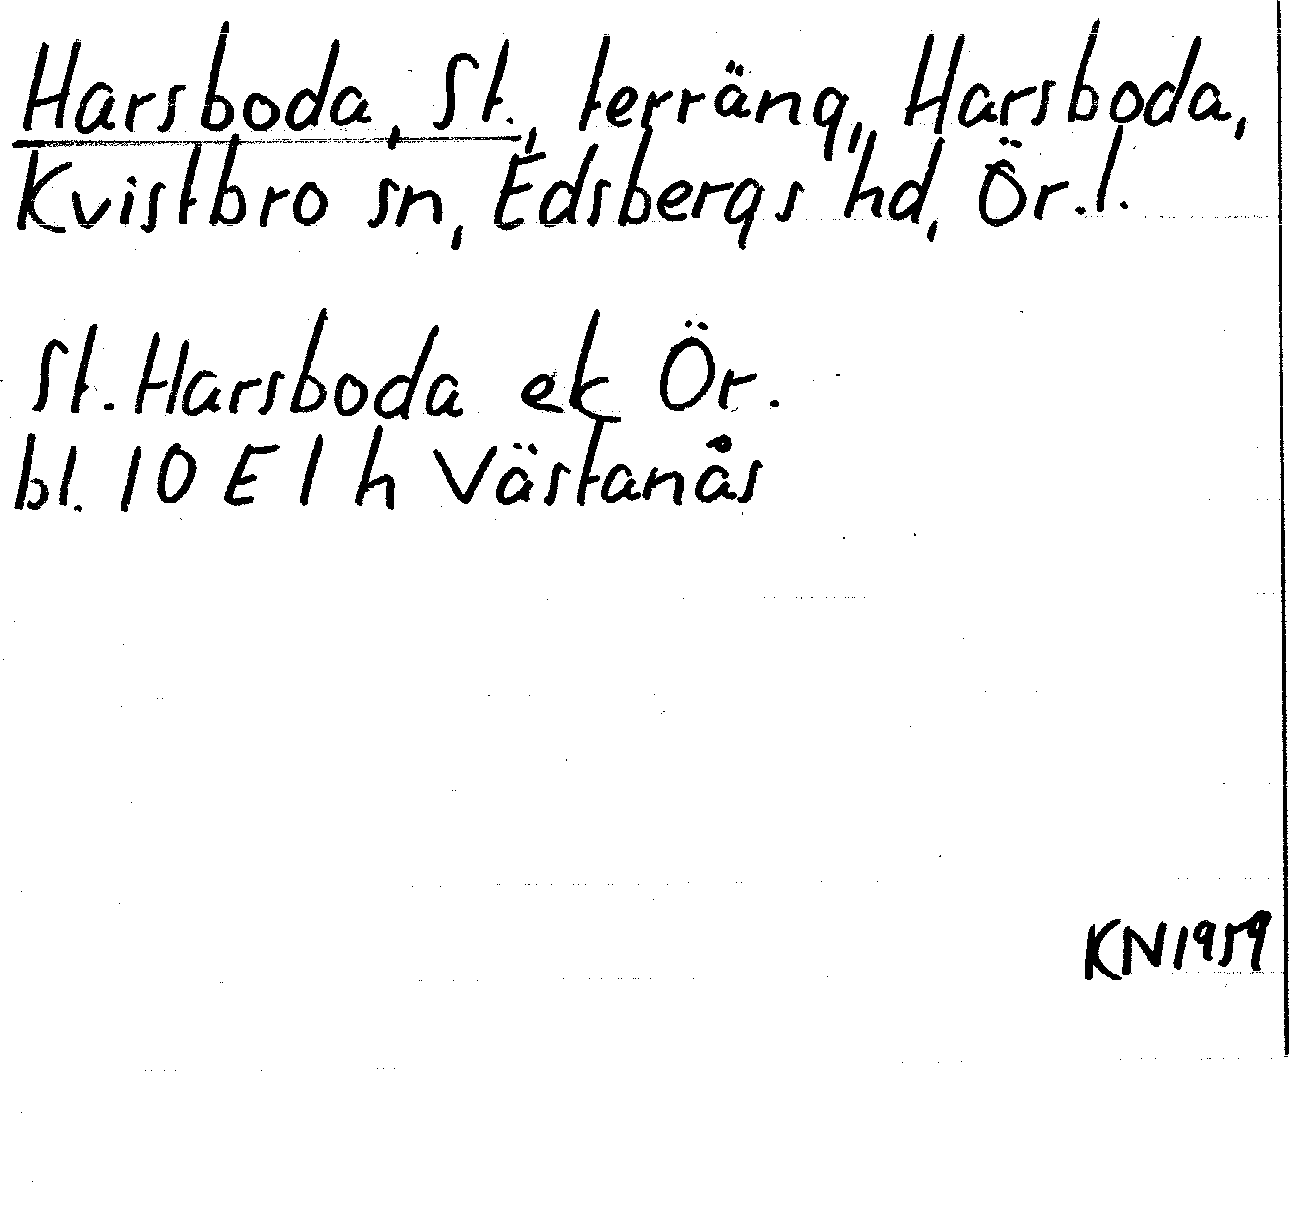 Harsboda, St., terräng, Harsboda,
Kvistbro sn, Edsbergs hd, Ör.l.
St. Harsboda ek Ör.
bl. 10 E 1 h Västanås
KN1959